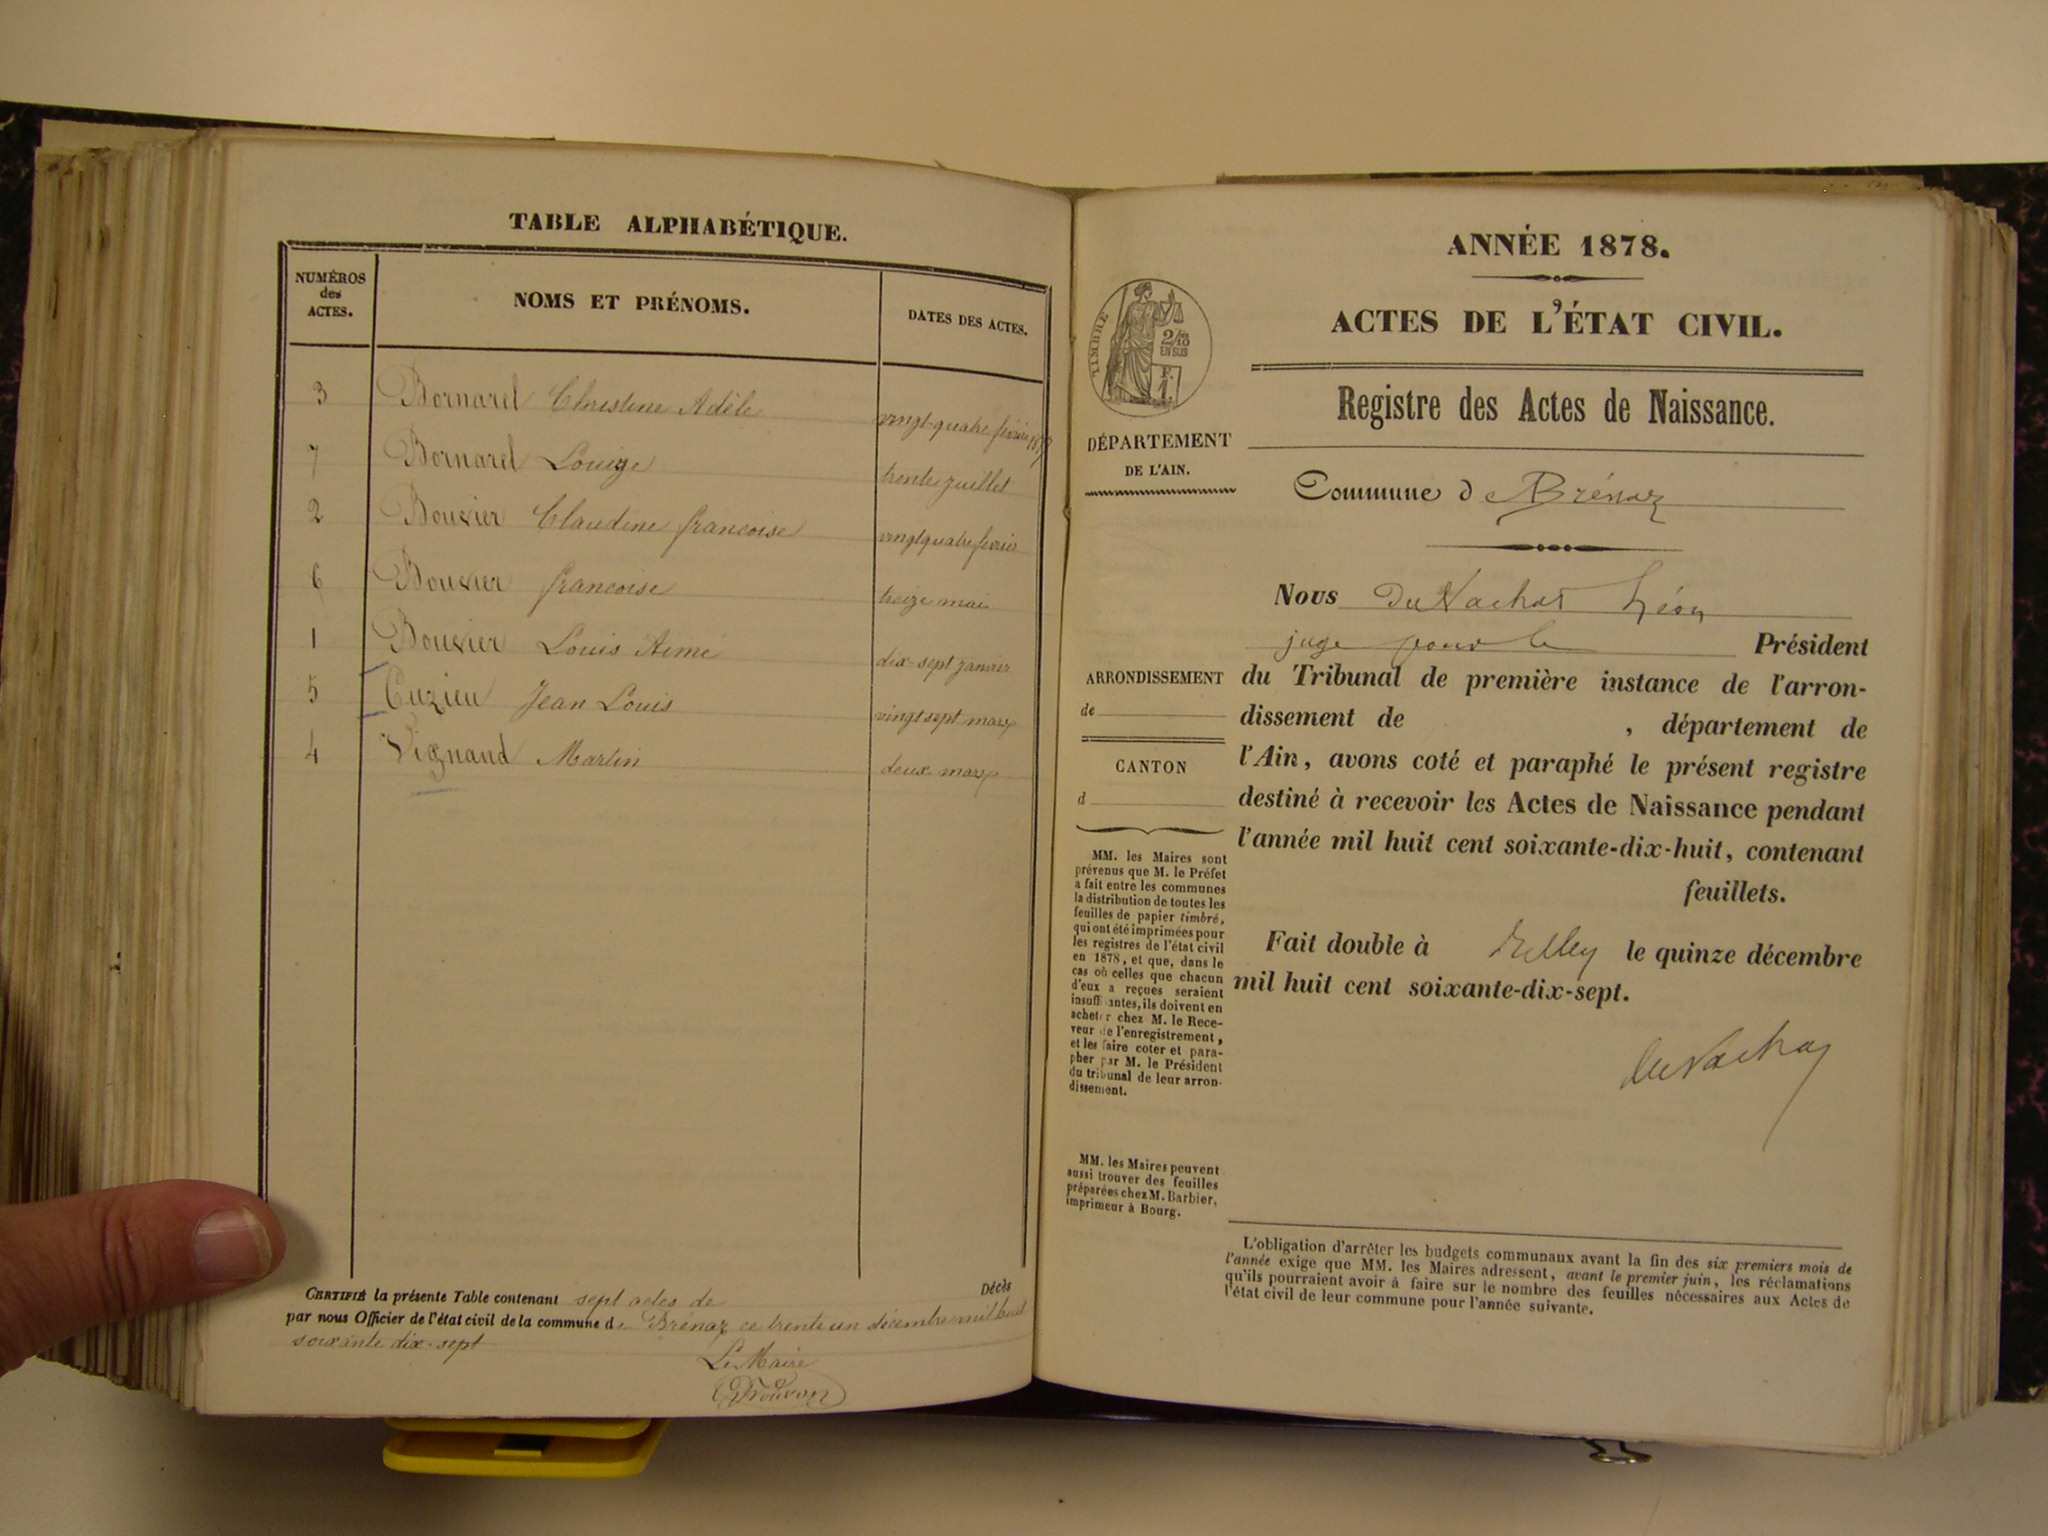 TABLE ALPHABÉTIQUE.
NUMÉROS
des
ACTES.
NOMS ET PRÉNOMS.
DATES DES ACTES.
3 Bornarel Christine Adèle vingt-quatre février 1877
7 Bornarel Louise trente juillet
2 Bouvier Claudine francoise vingt quatre février
6 Bouvier francoise treize mai
1 Bouvier Louis Aimé dix-sept janvier
5 Cuzieu Jean Louis vingt sept mars
4 Vignand Martin deux mars
CERTIFIÉ la présente Table contenant sept actes de Décès
par nous Officier de l'état civil de la commune de Brénaz ce trente un décembre mil huit
soixante dix-sept
Le Maire
ANNÉE 1878.
ACTES DE L'ÉTAT CIVIL.
TIMBRE
2/10
EN SUS
F.
1.
Registre des Actes de Naissance.
DÉPARTEMENT
DE L'AIN.
Commune de Brénaz
Nous Du Vachat Léon
juge pour le Président
du Tribunal de première instance de l'arron-
dissement de , département de
l'Ain, avons coté et paraphé le présent registre
destiné à recevoir les Actes de Naissance pendant
l'année mil huit cent soixante-dix-huit, contenant
feuillets.
Fait double à Belley le quinze décembre
mil huit cent soixante-dix-sept.
du Vachat
ARRONDISSEMENT
de
CANTON
d
MM. les Maires sont
prévenus que M. le Préfet
a fait entre les communes
la distribution de toutes les
feuilles de papier timbré,
qui ont été imprimées pour
les registres de l'état civil
en 1878, et que, dans le
cas où celles que chacun
d'eux a reçues seraient
insuffisantes, ils doivent en
acheter chez M. le Rece-
veur de l'enregistrement,
et les faire coter et para-
pher par M. le Président
du tribunal de leur arron-
dissement.
MM. les Maires peuvent
aussi trouver des feuilles
préparées chez M. Barbier,
imprimeur à Bourg.
L'obligation d'arrêter les budgets communaux avant la fin des six premiers mois de
l'année exige que MM. les Maires adressent, avant le premier juin, les réclamations
qu'ils pourraient avoir à faire sur le nombre des feuilles nécessaires aux Actes de
l'état civil de leur commune pour l'année suivante.